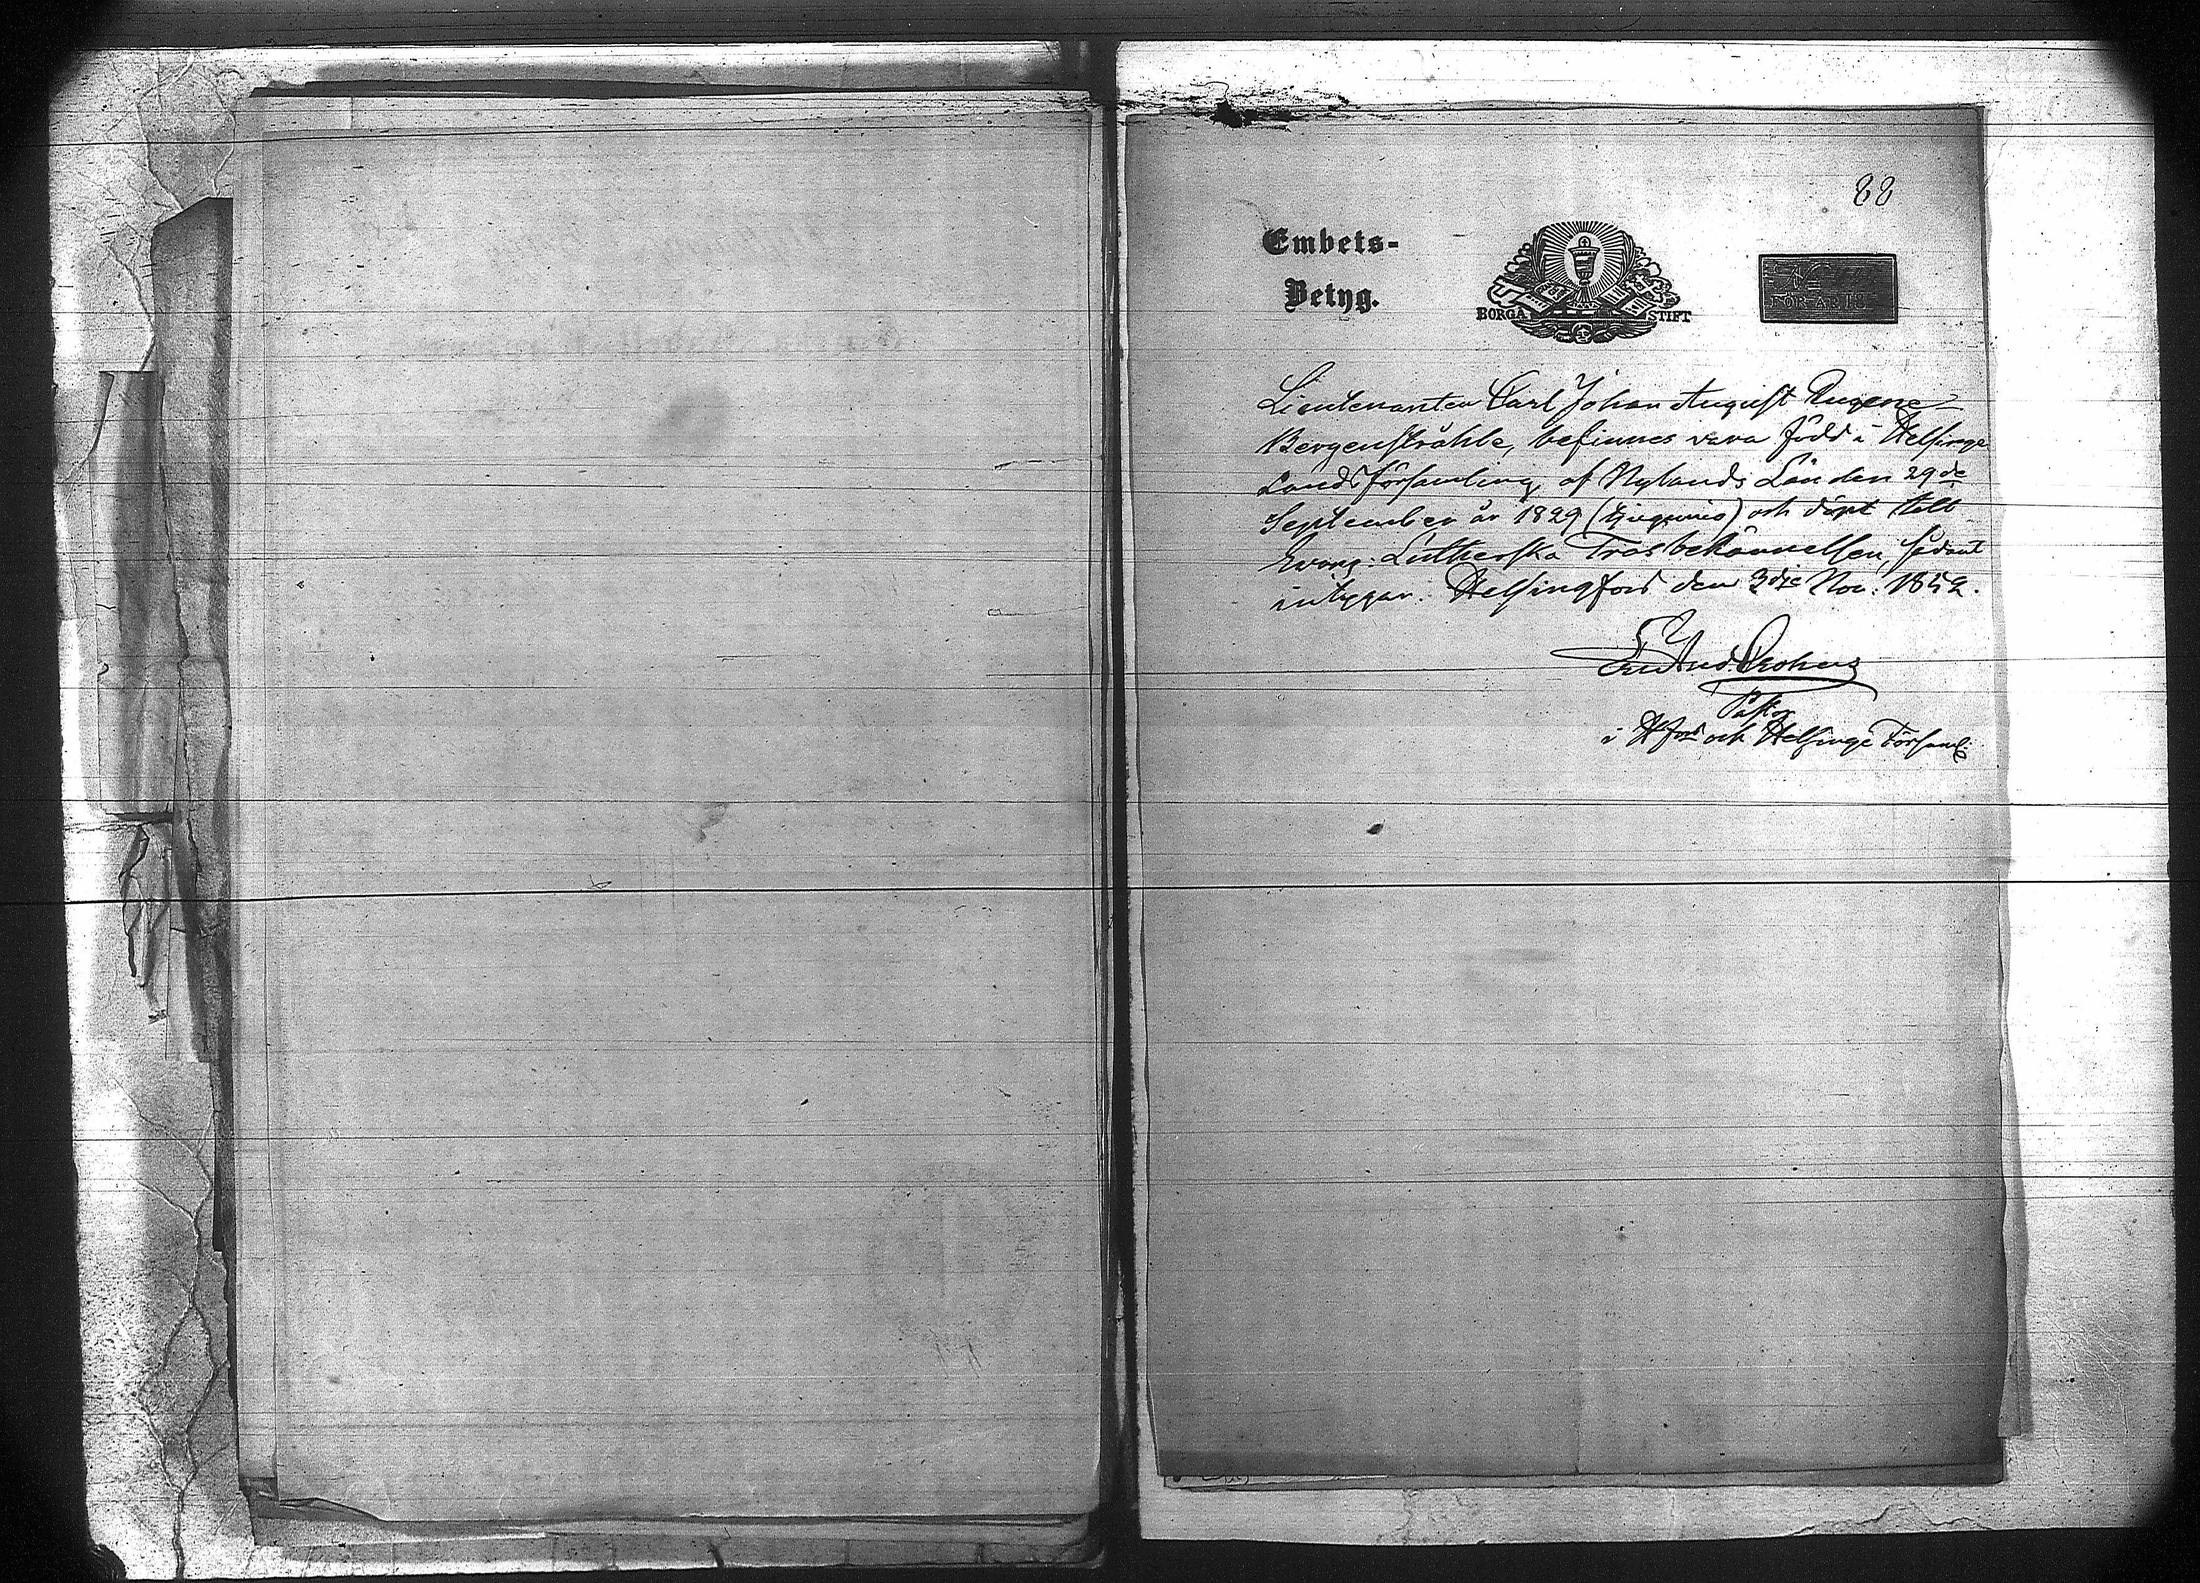 88
Embets-
Betyg.
BORGÅ STIFT
FÖR ÅR 18
Lieutenanten Carl Johan August Eugene
Bergenstråhle, befinnes vara född i Helsinge
Landsförsamling af Nylands Län den 29de
September år 1829 och döpt till
Evang: Lutherska Trosbekännelsen, sådant
intygar. Helsingfors den 3die Nov: 1852.
Pastor
i H:fors och Helsinge Församl: